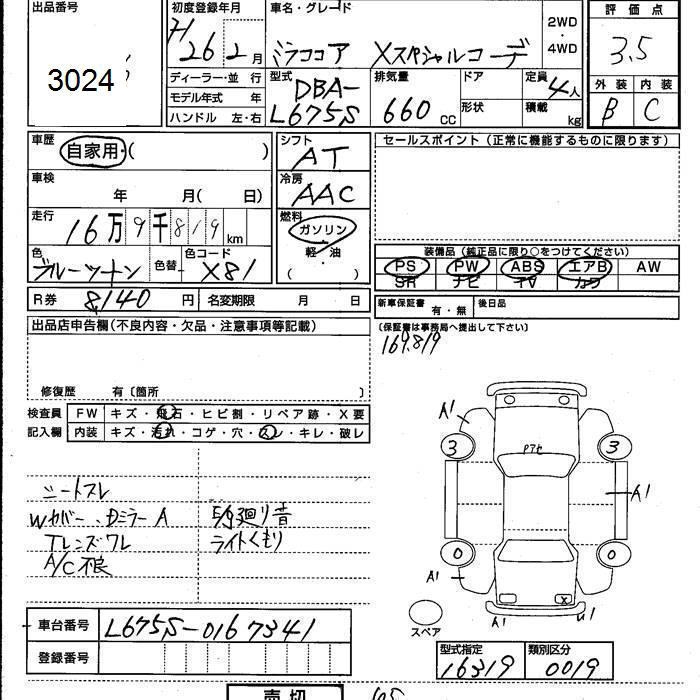 出品番号
3024
初度登録年月
H26 2月
車名・グレード
ミラココア Xスペシャルコーデ
2WD
・
4WD
評価点
3.5
外装 内装
B C
ディーラー・並行
モデル年式 年
ハンドル 左・右
型式
DBA-
L675S
排気量
660 CC
ドア
形状
定員
4人
積載
kg
車歴
自家用・( )
車検
年 月( 日)
走行
16万9千819km
色
ブルーツートン
色替
色コード
X81
シフト
AT
冷房
AAC
燃料
ガソリン
軽・油
( )
セールスポイント(正常に機能するものに限ります)
装備品(純正品に限り○をつけてください)
PS PW ABS エアB AW
SR ナビ TV カワ
R券 8,140円 名変期限 月 日
新車保証書 有・無 後日品
(保証書は事務局へ提出して下さい)
169,819
出品店申告欄(不良内容・欠品・注意事項等記載)
修復歴 有〔箇所 〕
検査員 FW キズ・飛石・ヒビ割・リペア跡・X要
記入欄 内装 キズ・汚れ・コゲ・穴・スレ・キレ・破レ
シートスレ
Wカバー、Dミラー A
Tレンズワレ
A/C不良
廻り音
ライトくもり
A1
3
3
A1
0
0
A1
X
A1
スペア
車台番号 L675S-0167341
登録番号
型式指定
16319
類別区分
0019
売切